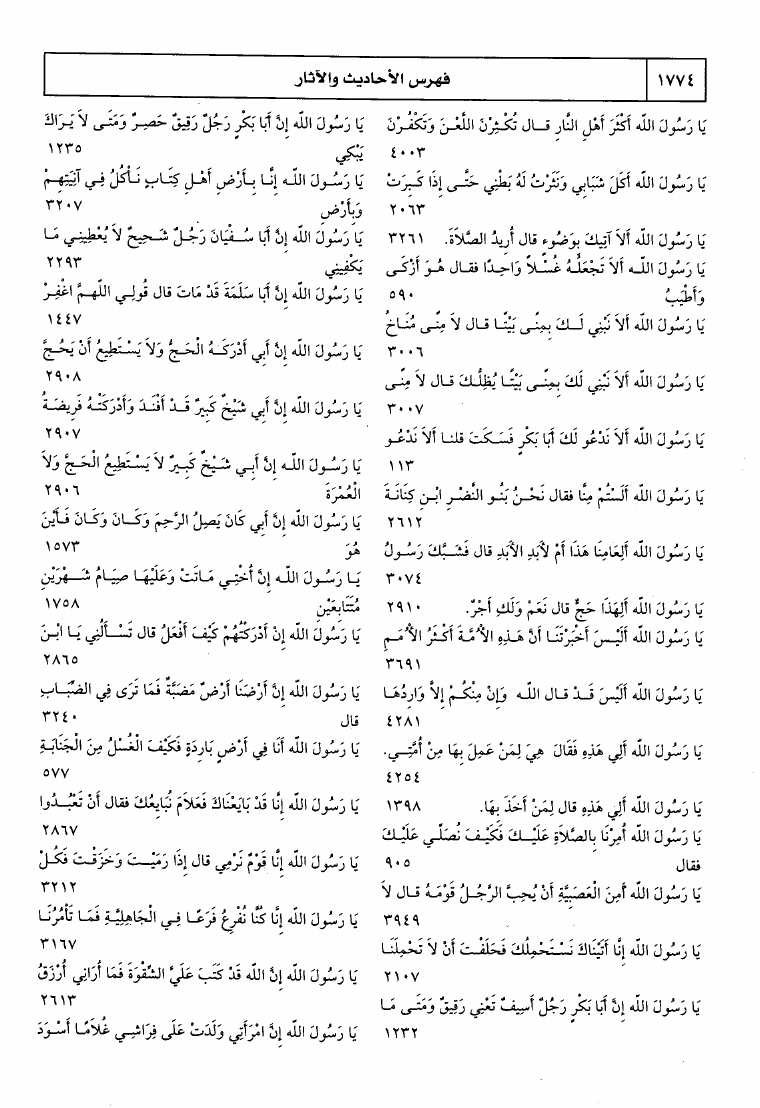 ١٧٧٤
فهرس الأحاديث والآثار
يَا رَسُولَ اللَّه أَكْثَرَ أَهْلِ النَّارِ قال تُكْثِرْنَ اللَّعْنَ وَتَكْفُرْنَ
٤٠٠٣
يَا رَسُولَ اللَّه أَكَلَ شَبَابِي وَنَثَرْتُ لَهُ بَطْنِي حَتَّى إِذَا كَبِرَتْ
٢٠٦٣
يَا رَسُولَ اللَّه أَلاَ آتِيكَ بِوَضُوءٍ قال أُرِيدُ الصَّلاَةَ. ٣٢٦١
يَا رَسُولَ اللَّه أَلاَ تَجْعَلُهُ غُسْلاً وَاحِدًا فقال هُوَ أَزْكَى
وَأَطْيَبُ ٥٩٠
يَا رَسُولَ اللَّه أَلاَ نَبْنِي لَكَ بِمِنًى بَيْتًا قال لاَ مِنًى مُنَاخُ
٣٠٠٦
يَا رَسُولَ اللَّه أَلاَ نَبْنِي لَكَ بِمِنًى بَيْتًا يُظِلُّكَ قال لاَ مِنًى
٣٠٠٧
يَا رَسُولَ اللَّه أَلاَ نَدْعُو لَكَ أَبَا بَكْرٍ فَسَكَتَ قلنا أَلاَ نَدْعُو
١١٣
يَا رَسُولَ اللَّه أَلَسْتُمْ مِنَّا فقال نَحْنُ بَنُو النَّضْرِ ابْنِ كِنَانَةَ
٢٦١٢
يَا رَسُولَ اللَّه أَلِعَامِنَا هَذَا أَمْ لأَبَدِ الأَبَدِ قال فَشَبَّكَ رَسُولُ
٣٠٧٤
يَا رَسُولَ اللَّه أَلِهَذَا حَجٌّ قال نَعَمْ وَلَكِ أَجْرٌ. ٢٩١٠
يَا رَسُولَ اللَّه أَلَيْسَ أَخْبَرْتَنَا أَنَّ هَذِهِ الأُمَّةَ أَكْثَرُ الأُمَمِ
٣٦٩١
يَا رَسُولَ اللَّه أَلَيْسَ قَدْ قال اللَّه وَإِنْ مِنْكُمْ إِلاَّ وَارِدُهَا
٤٢٨١
يَا رَسُولَ اللَّه أَلِي هَذِهِ فَقَالَ هِيَ لِمَنْ عَمِلَ بِهَا مِنْ أُمَّتِي.
٤٢٥٤
يَا رَسُولَ اللَّه أَلِي هَذِهِ قال لِمَنْ أَخَذَ بِهَا. ١٣٩٨
يَا رَسُولَ اللَّه أُمِرْنَا بِالصَّلاَةِ عَلَيْكَ فَكَيْفَ نُصَلِّي عَلَيْكَ
فقال ٩٠٥
يَا رَسُولَ اللَّه أَمِنَ الْعَصَبِيَّةِ أَنْ يُحِبَّ الرَّجُلُ قَوْمَهُ قال لاَ
٣٩٤٩
يَا رَسُولَ اللَّه إِنَّا أَتَيْنَاكَ نَسْتَحْمِلُكَ فَحَلَفْتَ أَنْ لاَ تَحْمِلَنَا
٢١٠٧
يَا رَسُولَ اللَّه إِنَّ أَبَا بَكْرٍ رَجُلٌ أَسِيفٌ تَعْنِي رَقِيقٌ وَمَتَى مَا
١٢٣٢
يَا رَسُولَ اللَّه إِنَّ أَبَا بَكْرٍ رَجُلٌ رَقِيقٌ حَصِرٌ وَمَتَى لاَ يَرَاكَ
يَبْكِي ١٢٣٥
يَا رَسُولَ اللَّه إِنَّا بِأَرْضِ أَهْلِ كِتَابٍ نَأْكُلُ فِي آنِيَتِهِمْ
وَبِأَرْضِ ٣٢٠٧
يَا رَسُولَ اللَّه إِنَّ أَبَا سُفْيَانَ رَجُلٌ شَحِيحٌ لاَ يُعْطِينِي مَا
يَكْفِينِي ٢٢٩٣
يَا رَسُولَ اللَّه إِنَّ أَبَا سَلَمَةَ قَدْ مَاتَ قال قُولِي اللَّهمَّ اغْفِرْ
١٤٤٧
يَا رَسُولَ اللَّه إِنَّ أَبِي أَدْرَكَهُ الْحَجُّ وَلاَ يَسْتَطِيعُ أَنْ يَحُجَّ
٢٩٠٨
يَا رَسُولَ اللَّه إِنَّ أَبِي شَيْخٌ كَبِيرٌ قَدْ أَفْنَدَ وَأَدْرَكَتْهُ فَرِيضَةُ
٢٩٠٧
يَا رَسُولَ اللَّه إِنَّ أَبِي شَيْخٌ كَبِيرٌ لاَ يَسْتَطِيعُ الْحَجَّ وَلاَ
الْعُمْرَةَ ٢٩٠٦
يَا رَسُولَ اللَّه إِنَّ أَبِي كَانَ يَصِلُ الرَّحِمَ وَكَانَ وَكَانَ فَأَيْنَ
هُوَ ١٥٧٣
يَا رَسُولَ اللَّه إِنَّ أُخْتِي مَاتَتْ وَعَلَيْهَا صِيَامُ شَهْرَيْنِ
مُتَتَابِعَيْنِ ١٧٥٨
يَا رَسُولَ اللَّه إِنْ أَدْرَكْتُهُمْ كَيْفَ أَفْعَلُ قال تَسْأَلُنِي يَا ابْنَ
٢٨٦٥
يَا رَسُولَ اللَّه إِنَّ أَرْضَنَا أَرْضٌ مَضَبَّةٌ فَمَا تَرَى فِي الضِّبَابِ
قال ٣٢٤٠
يَا رَسُولَ اللَّه أَنَا فِي أَرْضٍ بَارِدَةٍ فَكَيْفَ الْغُسْلُ مِنَ الْجَنَابَةِ
٥٧٧
يَا رَسُولَ اللَّه إِنَّا قَدْ بَايَعْنَاكَ فَعَلاَمَ نُبَايِعُكَ فقال أَنْ تَعْبُدُوا
٢٨٦٧
يَا رَسُولَ اللَّه إِنَّا قَوْمٌ نَرْمِي قال إِذَا رَمَيْتَ وَخَزَقْتَ فَكُلْ
٣٢١٢
يَا رَسُولَ اللَّه إِنَّا كُنَّا نُفْرِعُ فَرَعًا فِي الْجَاهِلِيَّةِ فَمَا تَأْمُرُنَا
٣١٦٧
يَا رَسُولَ اللَّه إِنَّ اللَّه قَدْ كَتَبَ عَلَيَّ الشِّقْوَةَ فَمَا أُرَانِي أُرْزَقُ
٢٦١٣
يَا رَسُولَ اللَّه إِنَّ امْرَأَتِي وَلَدَتْ عَلَى فِرَاشِي غُلاَمًا أَسْوَدَ